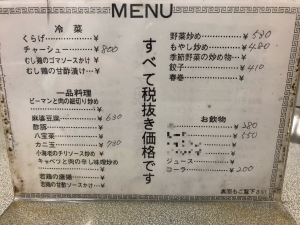 MENU
冷菜
くらげ……………¥
チャーシュー……¥800
むし鶏のゴマソースかけ¥
むし鶏の甘酢漬け…¥
一品料理
ピーマンと肉の細切り炒め
¥
麻婆豆腐…………¥630
酢豚………………¥
八宝菜……………¥
カニ玉……………¥780
小海老のチリソース炒め¥
キャベツと肉の辛し味噌炒め
¥
若鶏の唐揚………¥
若鶏の甘酢ソースかけ…¥
すべて税抜き価格です
野菜炒め…………¥580
もやし炒め………¥480
季節野菜の炒め物…¥
餃子………………¥410
春巻………………¥
お飲物
¥280
¥550
¥
ジュース…………¥
コーラ……………¥200
裏面もご覧下さい